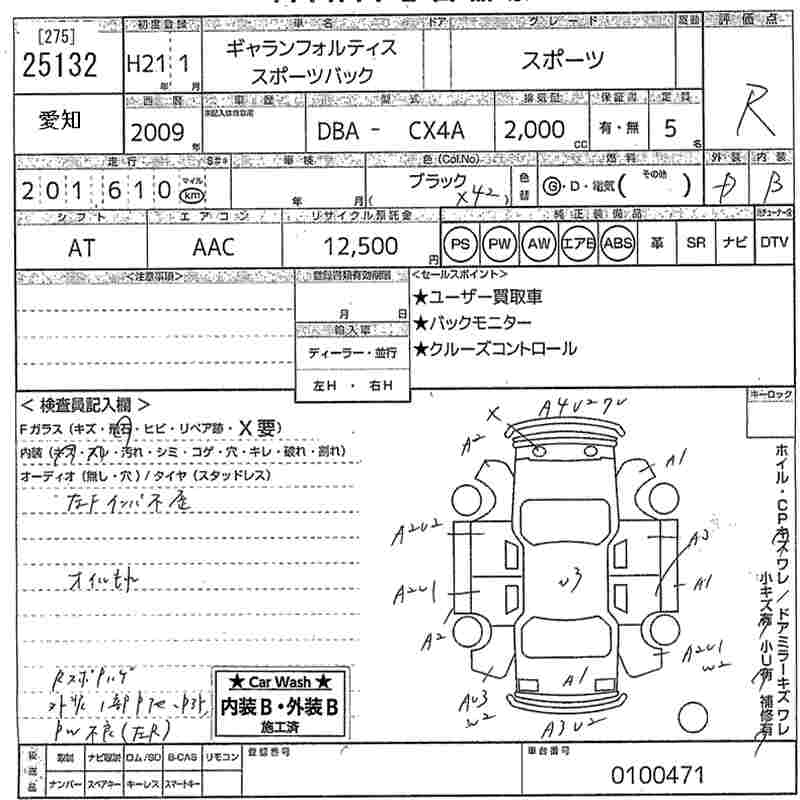 初度登録 車名 ドア グレード 駆動 評価点
[275]
25132
H21 1
年 月
ギャランフォルティス
スポーツバック
スポーツ
R
愛知
西暦 車歴 型式 排気量 保証書 定員
2009
年
DBA - CX4A
2,000
CC
有・無
5
名
走行 車検 色(Col.No) 燃料 外装 内装
201610
マイル
km
年 月
ブラック
( X42 )
色替
G・D・電気( その他 )
B
シフト エアコン リサイクル預託金 純正装備品
AT AAC 12,500 円
PS PW AW エアB ABS 革 SR ナビ DTV
<注意事項>
登録書類有効期限
月 日
輸入車
ディーラー・並行
左H ・ 右H
<セールスポイント>
★ユーザー買取車
★バックモニター
★クルーズコントロール
＜ 検査員記入欄 ＞
Fガラス (キズ・飛石・ヒビ・リペア跡・X要)
内装 (キズ・スレ・汚れ・シミ・コゲ・穴・キレ・破れ・割れ)
オーディオ (無し・穴) / タイヤ (スタッドレス)
キーロック
ホイル・CPキズワレ / ドアミラーキズワレ
小キズ有 / 小U有 補修有
X
A2
A1
A2U2
A3
A2U1
A1
A2
U3
A2U1
W2
A1
AU3
W2
A3U2
★ Car Wash ★
内装 B・外装 B
施工済
PW不良(左R)
後送品
取説 ナビ取説 ロム/SD B-CAS リモコン
ナンバー スペアキー キーレス スマートキー
登録番号
車台番号
0100471